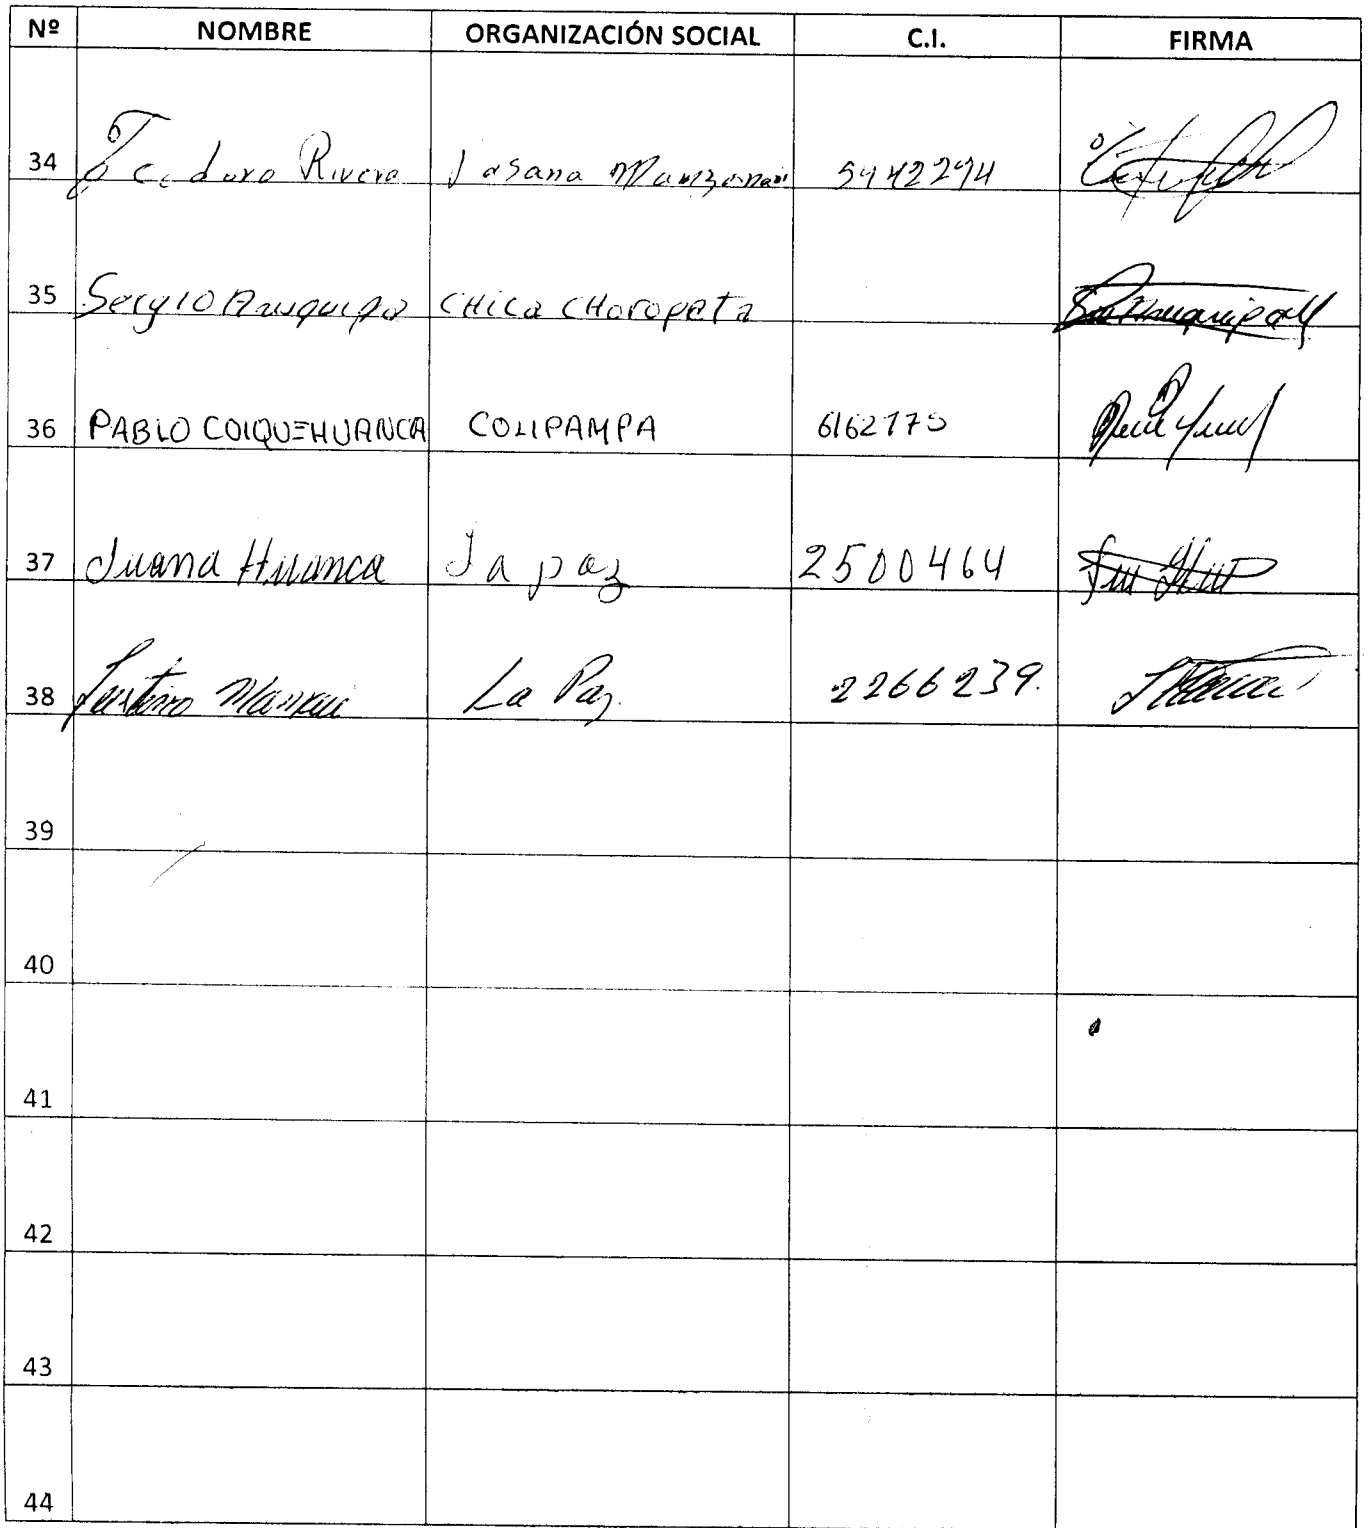 Nº NOMBRE ORGANIZACIÓN SOCIAL C.I. FIRMA
34 Teodoro Rivera 5942294
35 Sergio Auquipa CHica CHoropata
36 PABLO COLQUEHUANCA COLLPAMPA 6162775
37 Juana Huanca La paz 2500464
38 Mamani La Paz. 2266239.
39
40
41
42
43
44